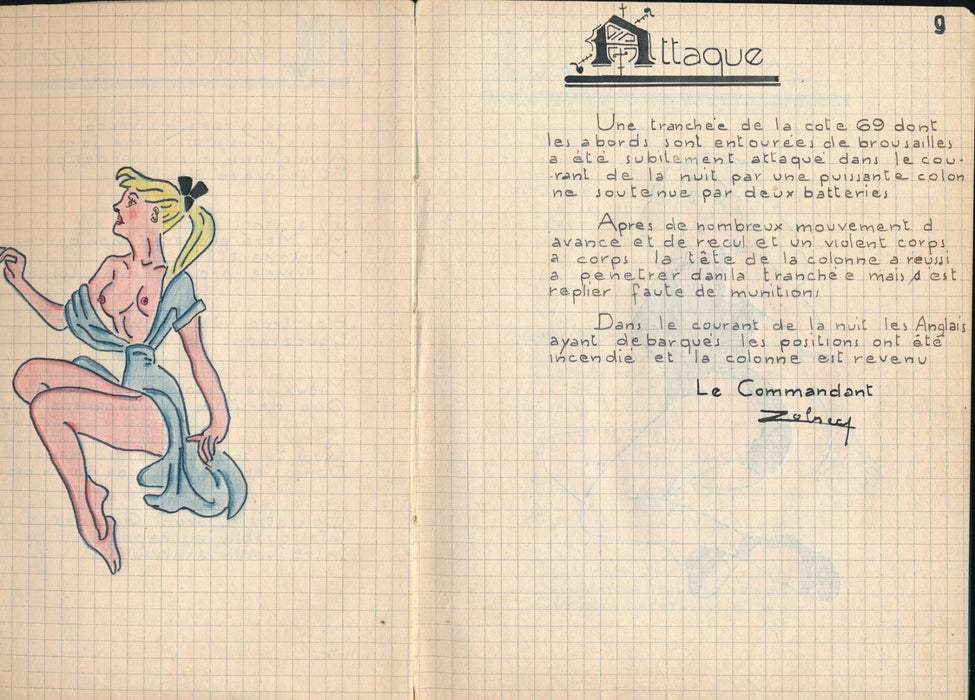 9
Attaque
Une tranchée de la cote 69 dont
les abords sont entourées de brousailles
a été subitement attaque dans le cou-
-rant de la nuit par une puissante colon
ne soutenue par deux batteries
Apres de nombreux mouvement d
avance et de recul et un violent corps
a corps la tête de la colonne a reussi
a penetrer dans la tranchée mais s'est
replier faute de munitions
Dans le courant de la nuit les Anglais
ayant debarqués les positions ont été
incendié et la colonne est revenu
Le Commandant